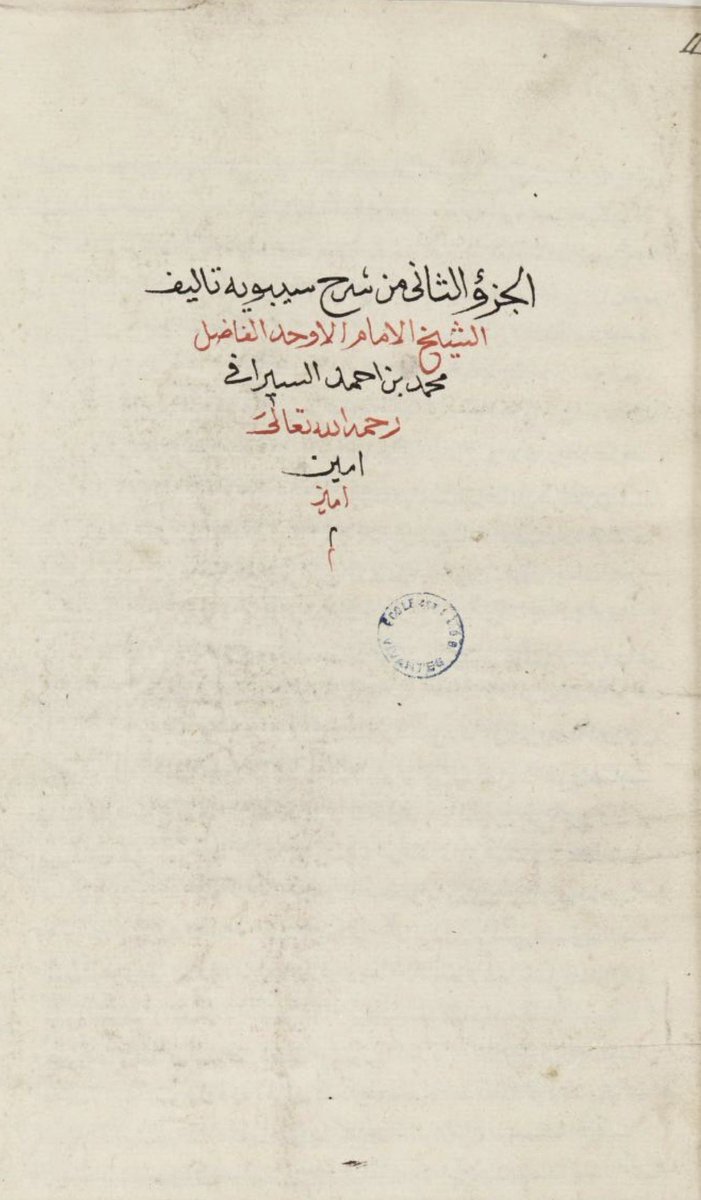 الجزؤ الثانى من شرح سيبويه تاليف
الشيخ الامام الاوحد الفاضل
محمد بن احمد السيرافى
رحمه الله تعالى
امين
امين
م
م
ECOLE DES
VIVANTES